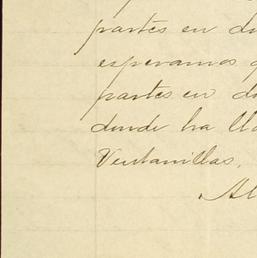 partes en
esperamos
partes en
donde ha
Ventanillas.